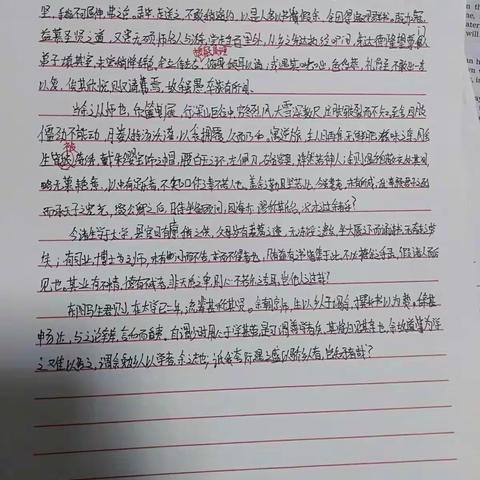 坚,手指不可屈伸,弗之怠。录毕,走送之,不敢稍逾约。以是人多以书假余,余因得遍观群书。既加冠,
益慕圣贤之道,又患无硕师名人与游,尝趋百里外,从乡之先达执经叩问。先达德隆望尊,门人
弟子填其室,未尝稍降辞色。余立侍左右,援疑质理,俯身倾耳以请;或遇其叱咄,色愈恭,礼愈至,不敢出一言
以复;俟其欣悦,则又请焉。故余虽愚,卒获有所闻。
当余之从师也,负箧曳屣,行深山巨谷中,穷冬烈风,大雪深数尺,足肤皲裂而不知。至舍,四肢
僵劲不能动,媵人持汤沃灌,以衾拥覆,久而乃和。寓逆旅,主人日再食,无鲜肥滋味之享。同舍
生皆被绮绣,戴朱缨宝饰之帽,腰白玉之环,左佩刀,右备容臭,烨然若神人;余则缊袍敝衣处其间,
略无慕艳意,以中有足乐者,不知口体之奉不若人也。盖余之勤且艰若此。今虽耄老,未有所成,犹幸预君子之列,
而承天子之宠光,缀公卿之后,日侍坐备顾问,四海亦谬称其氏名,况才之过于余者乎?
今诸生学于太学,县官日有廪稍之供,父母岁有裘葛之遗,无冻馁之患矣;坐大厦之下而诵诗书,无奔走之劳
矣;有司业、博士为之师,未有问而不告,求而不得者也;凡所宜有之书,皆集于此,不必若余之手录,假诸人而后
见也。其业有不精,德有不成者,非天质之卑,则心不若余之专耳,岂他人之过哉?
东阳马生君则,在太学已二年,流辈甚称其贤。余朝京师,生以乡人子谒余,撰长书以为贽,
辞甚畅达,与之论辩,言和而色夷。自谓少时用心于学甚劳,是可谓善学者矣。其将归见其亲也,余故道为学
之难以告之。谓余勉乡人以学者,余之志也;诋我夸际遇之盛而骄乡人者,岂知予者哉?